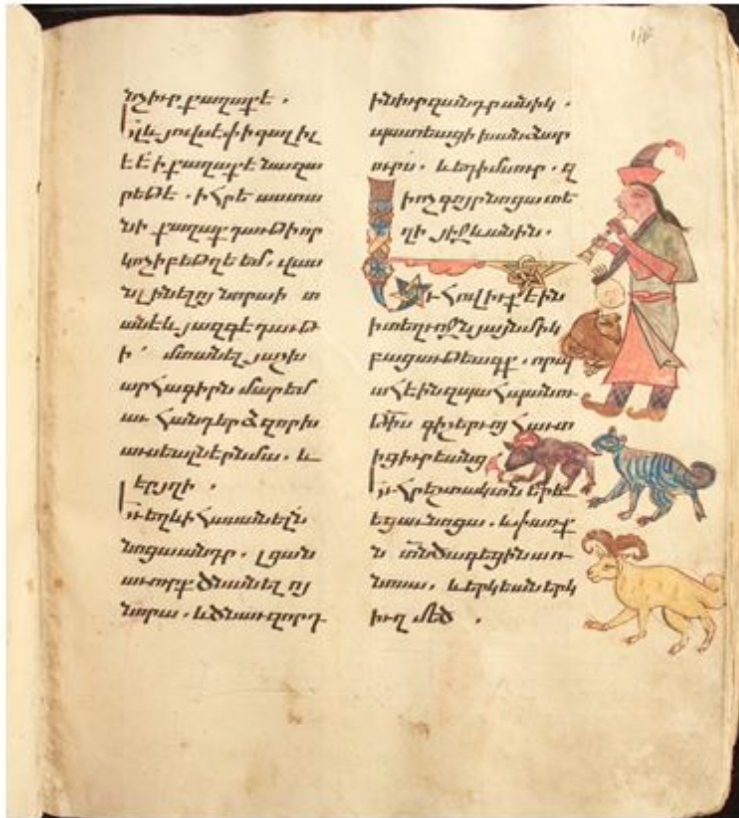 նչիւր քաղաքէ .
Ել և յովսէփ ի գալիլ
է է ի քաղաքէ նազա
րեթէ . ի հրէ աստա
նի քաղաք դաւթի որ
կոչի բեթղեէմ . վաս
ն լինելոյ նորա ի տ
անէ և յազգէ դաւթ
ի ՛ մտանել յաշխ
արհագիրն մարեմ
աւ հանդերձ զոր խ
աւսեալ ներ նմա . և
էր յղի .
Եւ եղև ի հասանելն
նոցա անդր . լցան
աւուրք ծնանելոյ
նորա . և ծնաւ զորդ
ի նիւր զանդրանիկ .
պատեաց ի խանձար
ուրս . և եդ ի մսուր . զ
ի ոչ գոյր նոցա տե
ղի յիջևանին .
Եւ հովիւք էին
ի տեղւոջն յայնմիկ
բացաւթեագք . որպ
ահէին զպահպանու
թիս գիշերոյ հաւտ
ից իւրեանց
Եւ հրեշտակ տն երե
եցաւ նոցա . և փառք
ն տն ծագեցին առ
նոսա . և երկեան երկ
իւղ մեծ .